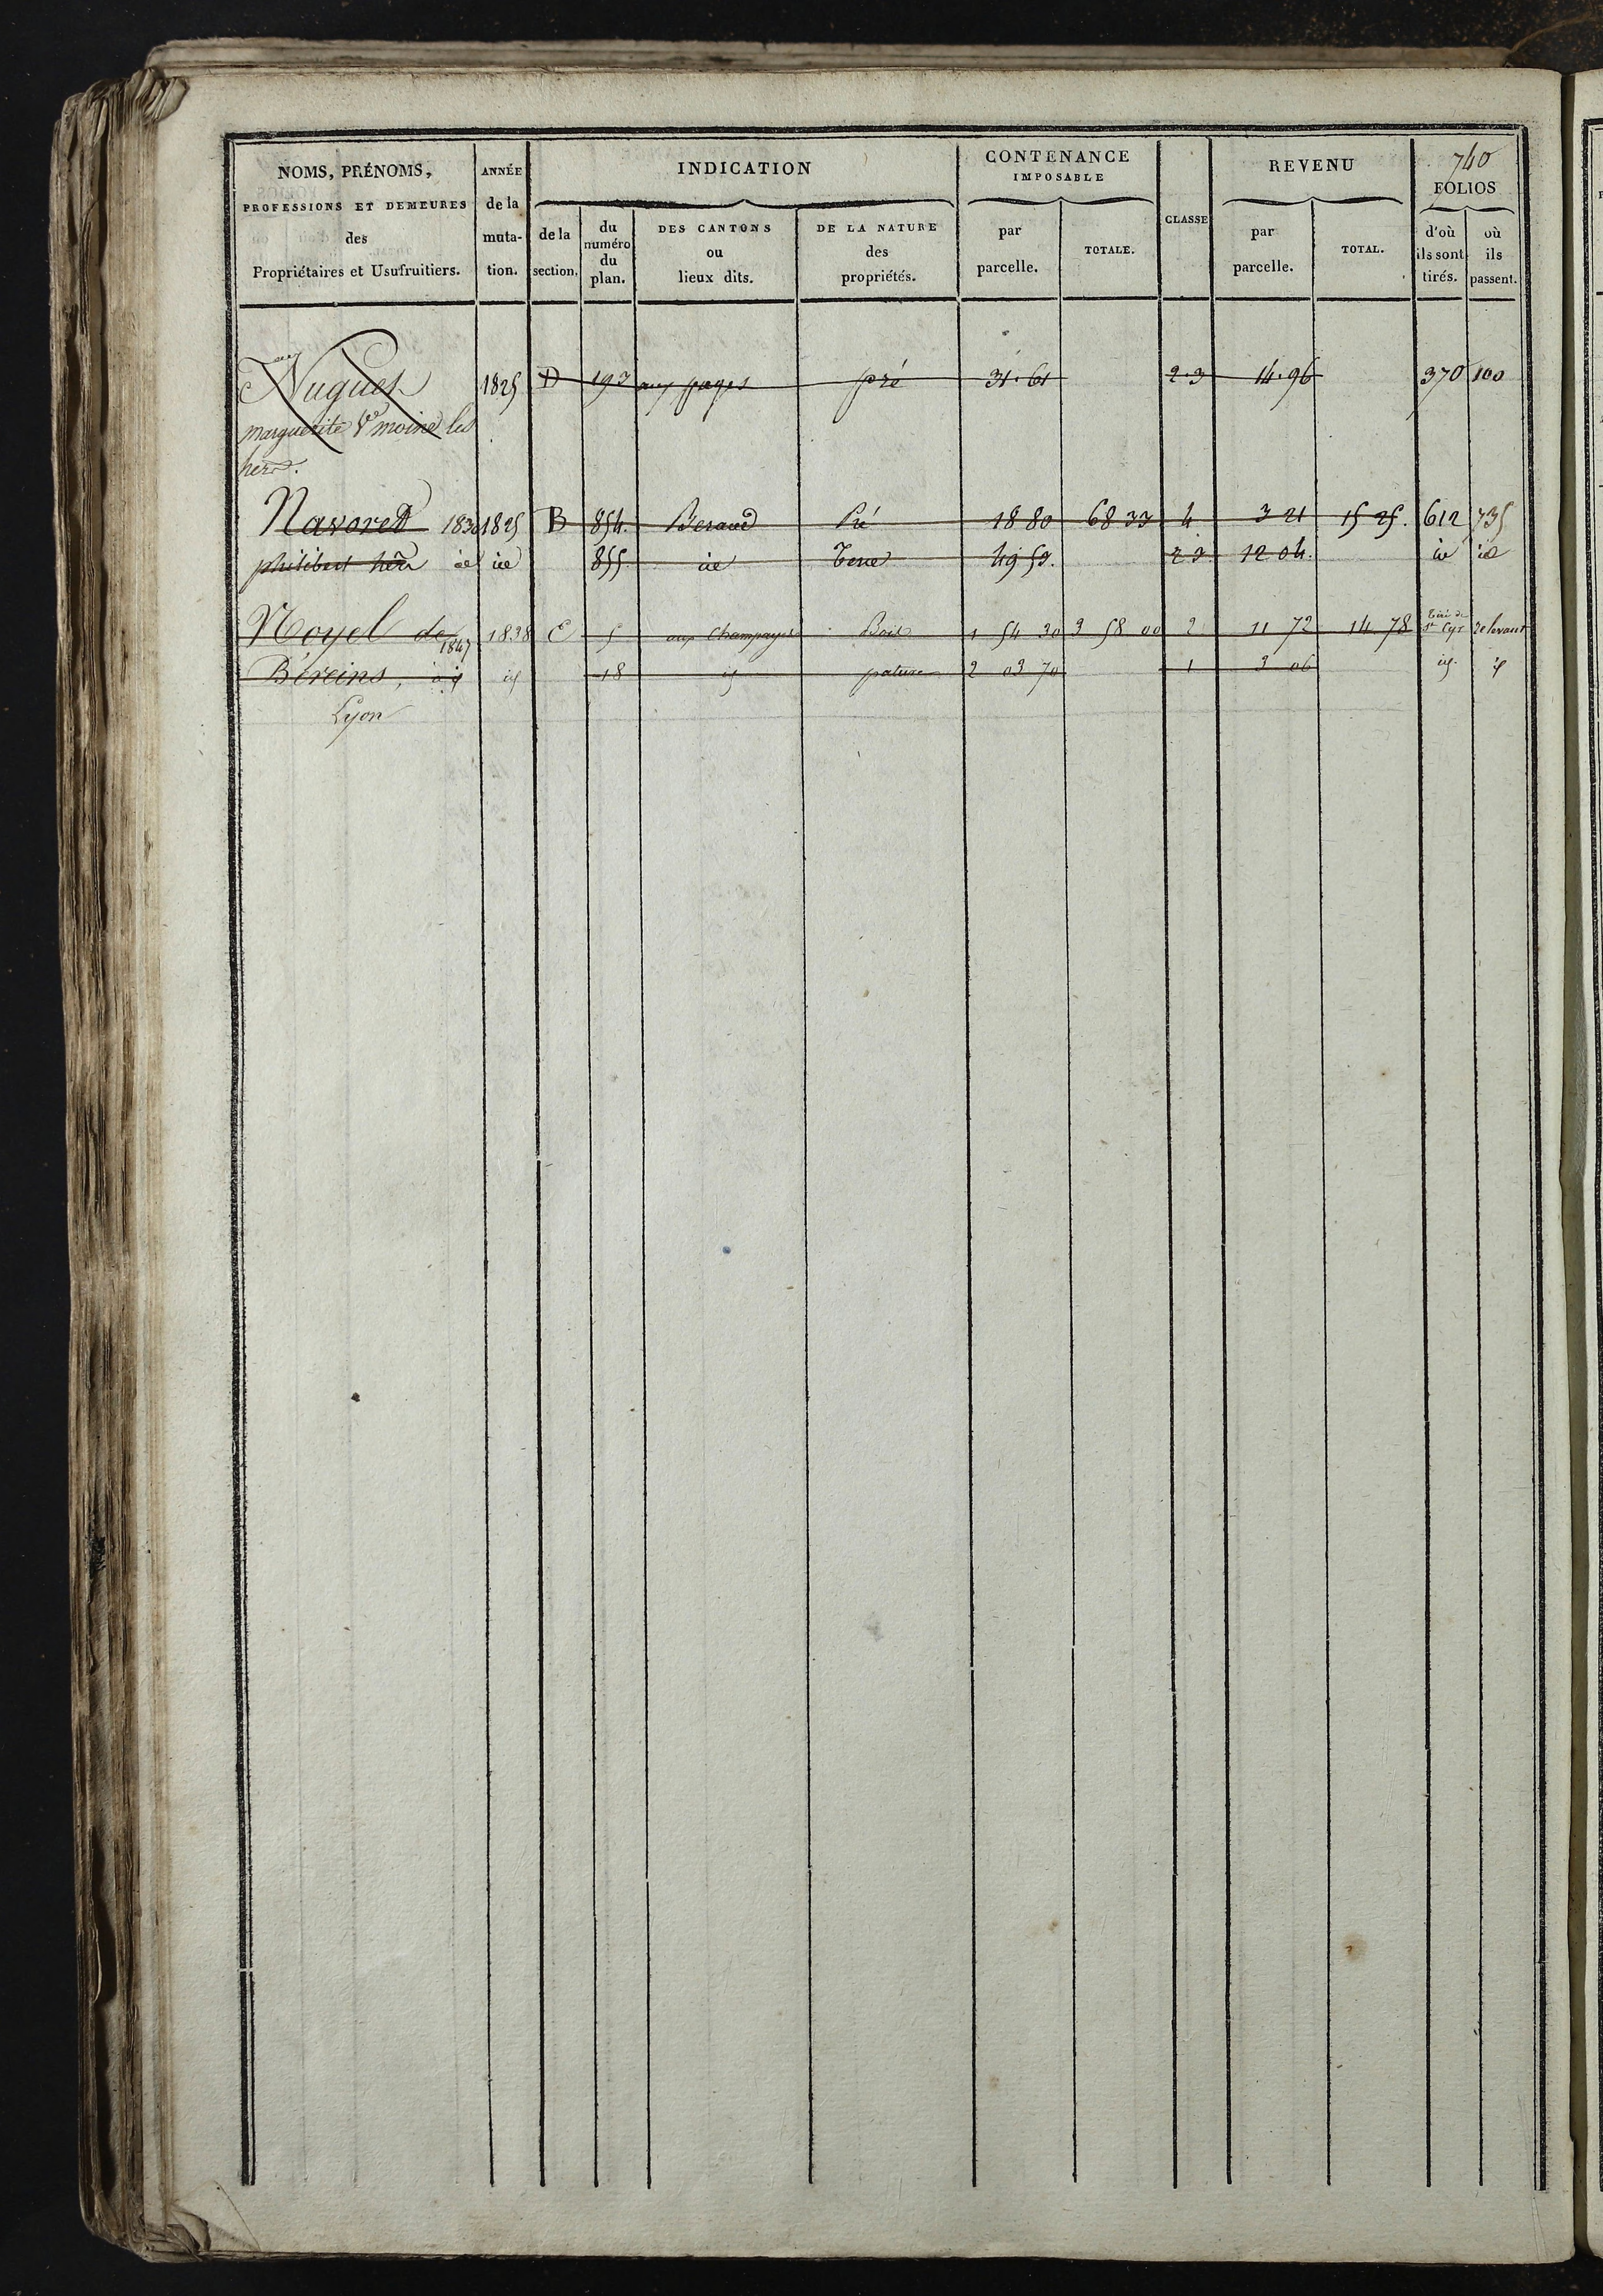 740
NOMS, PRÉNOMS,
PROFESSIONS ET DEMEURES
des
Propriétaires et Usufruitiers.
ANNÉE
de la
muta-
tion.
INDICATION
de la
section.
du
numéro
du
plan.
DES CANTONS
ou
lieux dits.
DE LA NATURE
des
propriétés.
CONTENANCE
IMPOSABLE
par
parcelle.
TOTALE.
CLASSE
REVENU
par
parcelle.
TOTAL.
FOLIOS
d'où
ils sont
tirés.
où
ils
passent.
Nugues 1825 D 193 aux pages pré 31.61 2.3 14.96 370 100
marguerite Ve moine les
hers.
Navoret 1830 1825 B 854. Beraud Pré 18 80 68 33 4 3 21 15 25. 612 735
philibert id id 855 id Terre 49 53. 2 3 12 04. id id
Noyel de 1847 1838 C 5 aux Champagnes Bois 1 54 30 3 58 00 2 11 72 14 78 Tiré de St Cyr
Béreins, à id id 18 id pature 2 03 70 1 3 06 id id
Lyon